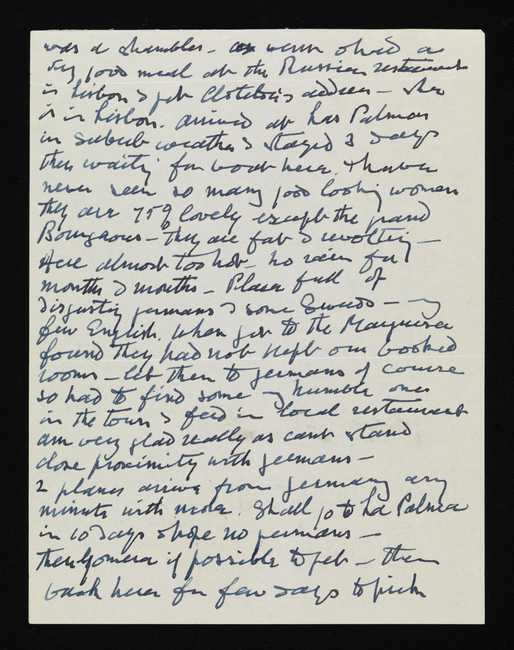 was a shambles - never had a
very good meal at the Russian restaurant
in Lisbon & got Clotilde's address - she
is in Lisbon. arrived at Las Palmas
in superb weather & stayed 3 days
there waiting for boat here. I have
never seen so many good looking women
they are 75% lovely except the grand
Bourgeois - they are fat & revolting -
Here almost too hot - no rain for
months & months - Place full of
disgusting germans & some Swedes -
few English. When got to the Marquesa
found they had not kept our booked
rooms - let them to germans of course
so had to find some humble ones
in the town & feed in local restaurant
am very glad really as cant stand
close proximity with germans -
2 planes arrive from germany every
minute with more. Shall go to La Palma
in 10 days I hope no germans -
then Gomera if possible to get - then
back here for few days to pick